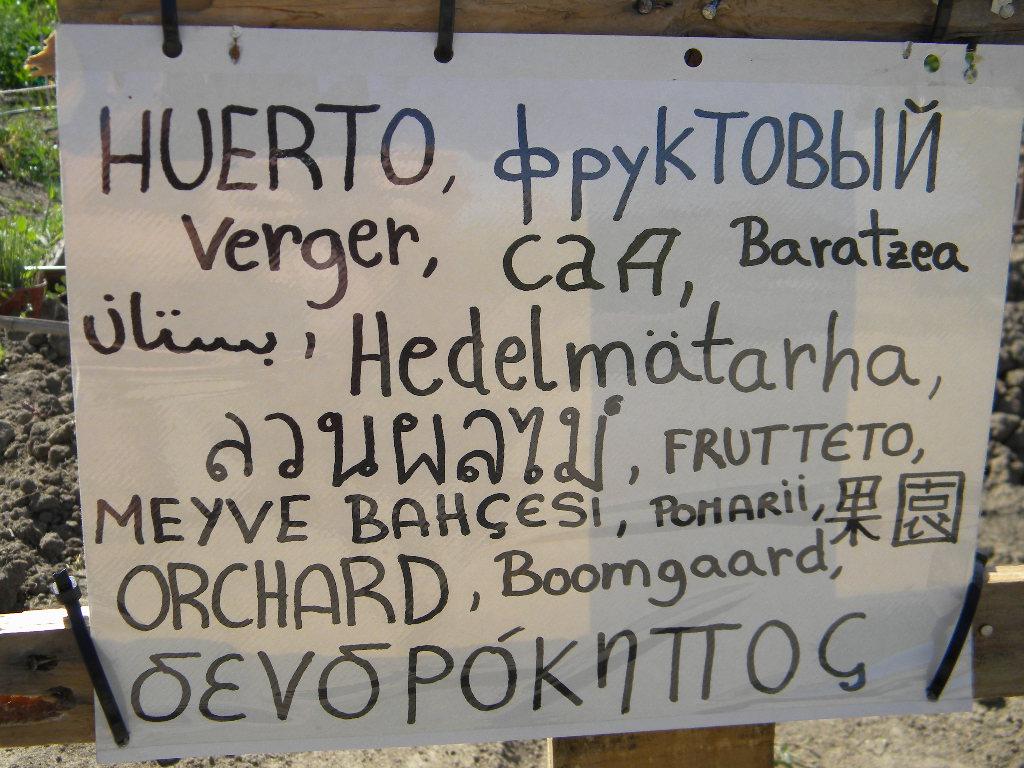 HUERTO, фруктовый
Verger, сад, Baratzea
بستان, Hedelmätarha,
สวนผลไม้, FRUTTETO,
MEYVE BAHÇESI, POMARII, 果園
ORCHARD, Boomgaard,
δενδρόκηπος